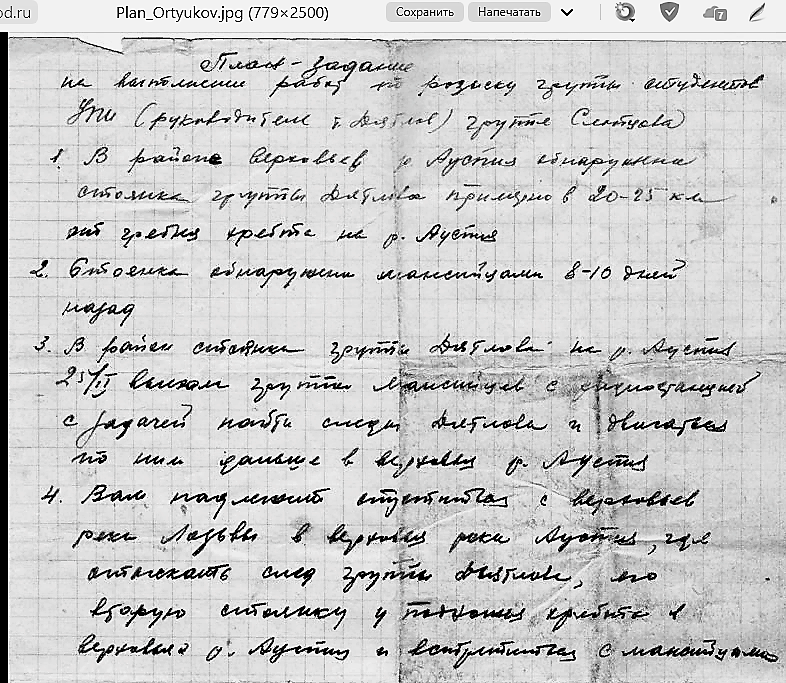 od.ru
Plan_Ortyukov.jpg (779×2500)
Сохранить
Напечатать
7
План-задание
на выполнение работ по розыску группы студентов
УПИ (руководителе т. Дятлов) группе Слопцова
1. В районе верховьев р Ауспия обнаружена
стоянка группы Дятлова примерно в 20-25 км
от гребня хребта на р. Ауспия
2. Стоянка обнаружена мансийцами 8-10 дней
назад
3. В район стоянки группы Дятлова на р. Ауспия
25/II выехали группа Мансийцев с радиостанцией
с задачей найти следы Дятлова и двигаться
по ним дальше в верховья р. Ауспия
4. Вам надлежит спуститься с верховьев
реки Лозьвы в верховья реки Ауспия, где
отыскать след группы Дятлова, его
вторую стоянку у подножия хребта в
верховья р. Ауспия и встретиться с мансийцами